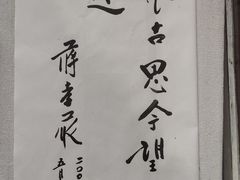 古思今望
蔣孝嚴
二〇〇
五月